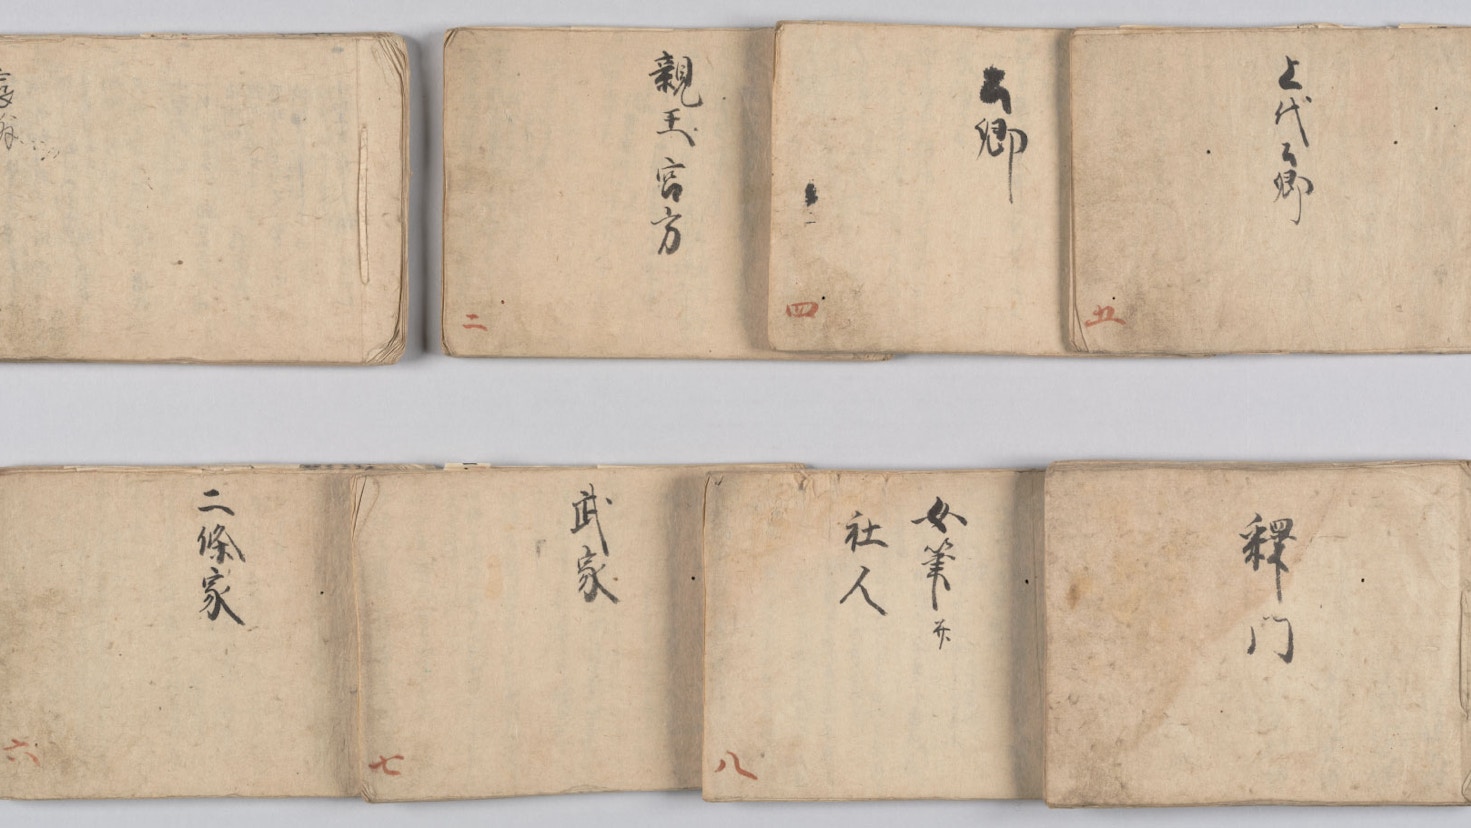 親王宮方
二
公卿
四
上代公卿
五
二條家
六
武家
七
女筆并
社人
八
釋門